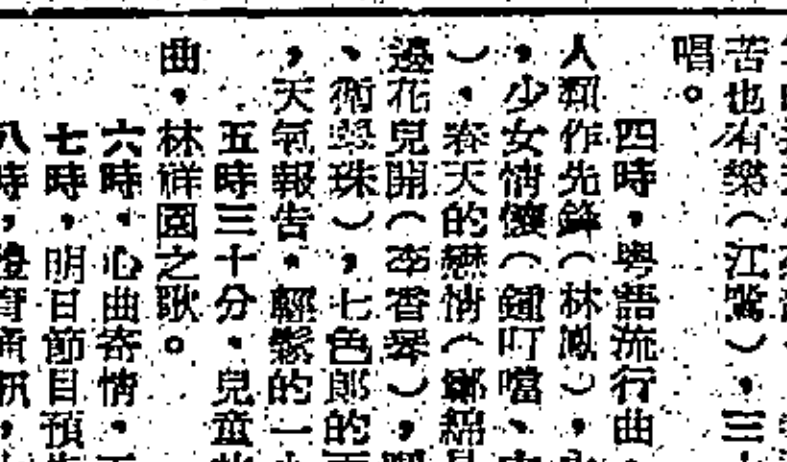 苦也有樂（江鷺），三
唱。
四時，粵語流行曲，
人類作先鋒（林鳳），
，少女情懷（鍾叮噹、
），春天的戀情（鄭錦
邊花兒開（李香琴），
、衛明珠），七色郎的
，天氣報告，輕鬆的一
五時三十分，兒童
曲，林祥園之歌。
六時，心曲寄情，
七時，明日節目預
八時，體育通訊，